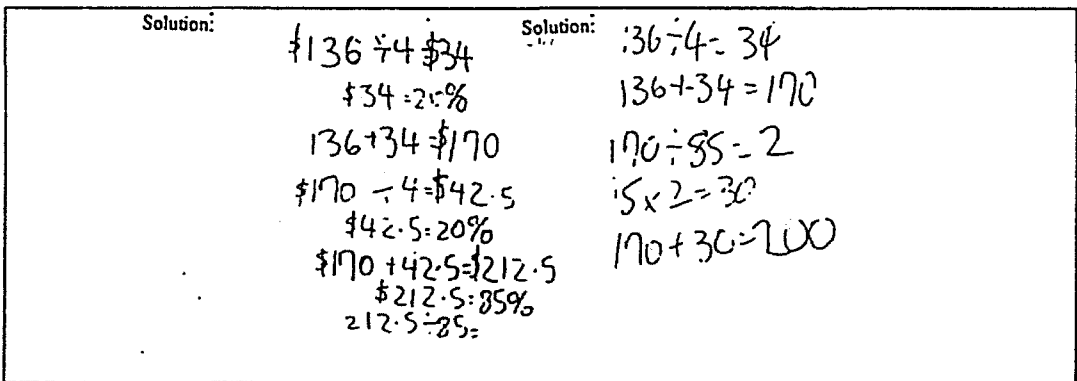 Solution:
$136 ÷ 4 $34
$34 = 20%
136+34=$170
$170 ÷ 4=$42.5
$42.5=20%
$170 +42.5=$212.5
$212.5=85%
212.5÷85=
Solution:
136÷4= 34
136+34=170
170÷85=2
15x2=30
170+30=200